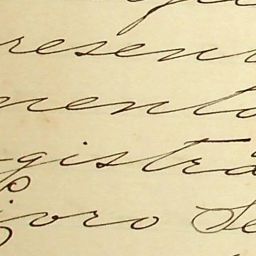 resent
mento
gistra
ivro Se